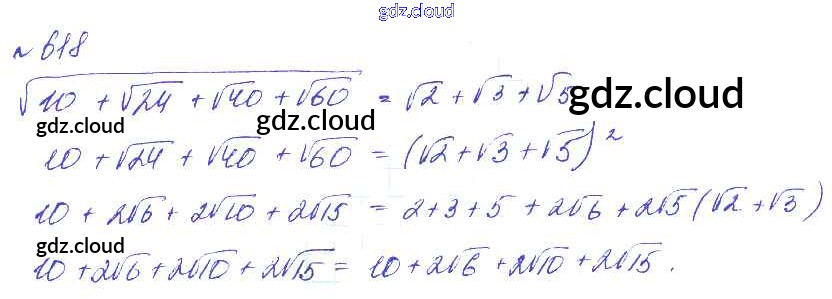 gdz.cloud
№ 618
√(10 + √24 + √40 + √60) = √2 + √3 + √5
gdz.cloud
gdz.cloud
gdz.cloud
10 + √24 + √40 + √60 = (√2 + √3 + √5)²
10 + 2√6 + 2√10 + 2√15 = 2+3+5 + 2√6 + 2√5 (√2 + √3)
gdz.cloud
10 + 2√6 + 2√10 + 2√15 = 10 + 2√6 + 2√10 + 2√15 .